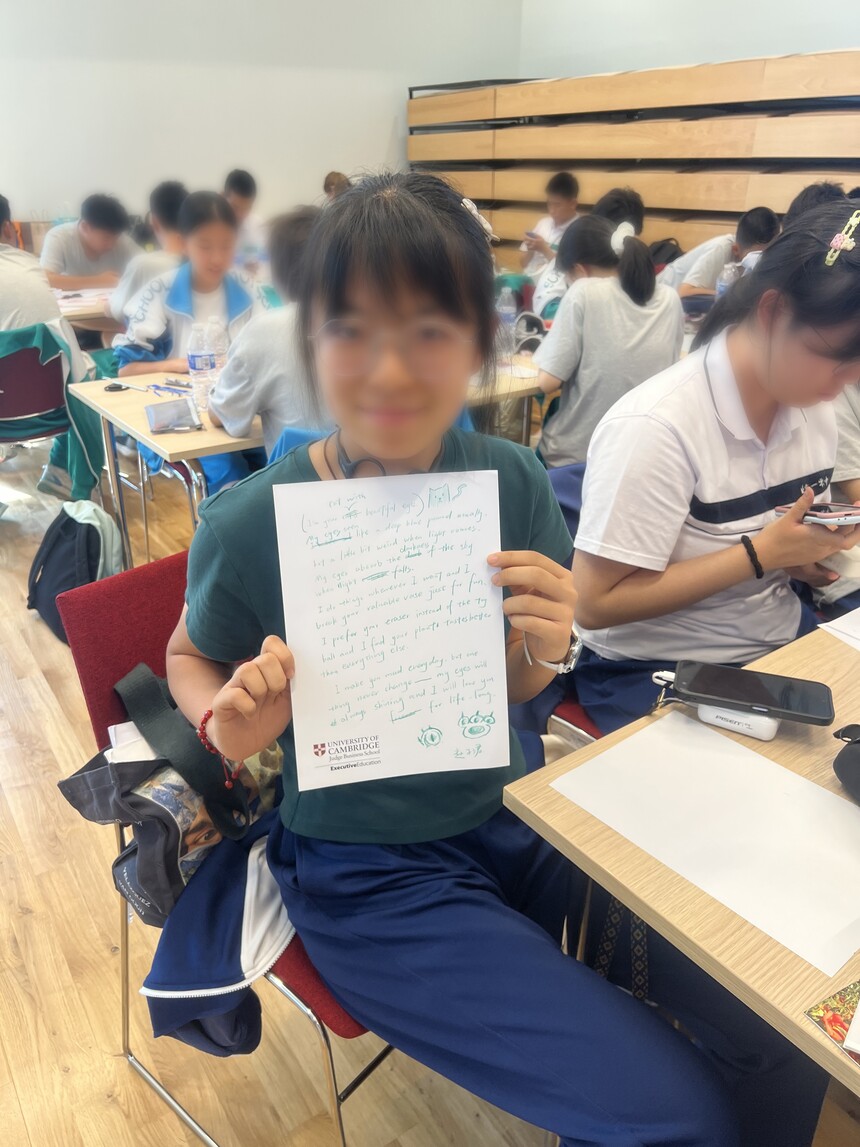 cat with
(Do you beautiful eye)
My eyes like a deep blue pound usually
but a little bit weird when light
My eyes absorb the darkness of the sky
when Night falls.
I do whenever I want and I
break your valuable vase just for fun.
I prefer your eraser instead of the toy
ball and I find your plants tastes better
than everything else
I make you mad everyday. but one
thing never change — my eyes will
always shining and I will love you
for life long.
UNIVERSITY OF
CAMBRIDGE
Judge Business School
Executive Education